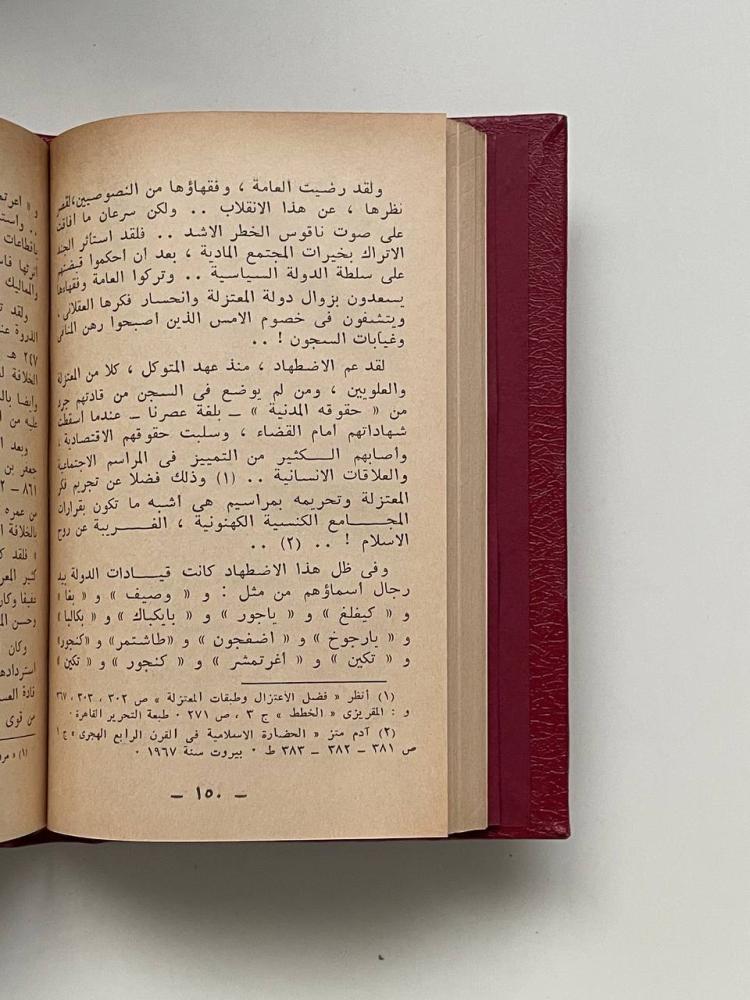 ولقد رضيت العامة ، وفقهاؤها من النصوصيين، لقصر
نظرها ، عن هذا الانقلاب .. ولكن سرعان ما افاقت
على صوت ناقوس الخطر الاشد .. فلقد استأثر الجند
الاتراك بخيرات المجتمع المادية ، بعد ان احكموا قبضتهم
على سلطة الدولة السياسية .. وتركوا العامة وفقهاءها
يسعدون بزوال دولة المعتزلة وانحسار فكرها العقلانى ،
ويتشفون فى خصوم الامس الذين اصبحوا رهن المنافى
وغيابات السجون ! ..
لقد عم الاضطهاد ، منذ عهد المتوكل ، كلا من المعتزلة
والعلويين ، ومن لم يوضع فى السجن من قادتهم جرد
من « حقوقه المدنية » ــ بلغة عصرنا ــ عندما اسقطت
شهاداتهم امام القضاء ، وسلبت حقوقهم الاقتصادية ،
واصابهم الكثير من التمييز فى المراسم الاجتماعية
والعلاقات الانسانية .. (١) وذلك فضلا عن تجريم فكر
المعتزلة وتحريمه بمراسيم هى اشبه ما تكون بقرارات
المجامع الكنسية الكهنوتية ، الغريبة عن روح
الاسلام ! .. (٢) ..
وفى ظل هذا الاضطهاد كانت قيادات الدولة بيد
رجال اسماؤهم من مثل : و « وصيف » و « بغا »
و « كيغلغ » و « ياجور » و « بايكباك » و « بكالبا »
و « يارجوخ » و « اضفجون » و «طاشتمر» و «كنجور»
و « تكين » و « أغرتمشر » و « كنجور » و « تكين »
(١) أنظر « فضل الاعتزال وطبقات المعتزلة » ص ٣٠٢ ، ٣٠٣ ، ٣٦٧
و : المقريزى « الخطط » ج ٣ ، ص ٢٧١ ٠ طبعة التحرير القاهرة ٠
(٢) آدم متز « الحضارة الاسلامية فى القرن الرابع الهجرى » ج ١
ص ٣٨١ ــ ٣٨٢ ــ ٣٨٣ ط ٠ بيروت سنة ١٩٦٧ ٠
ــ ١٥٠ ــ